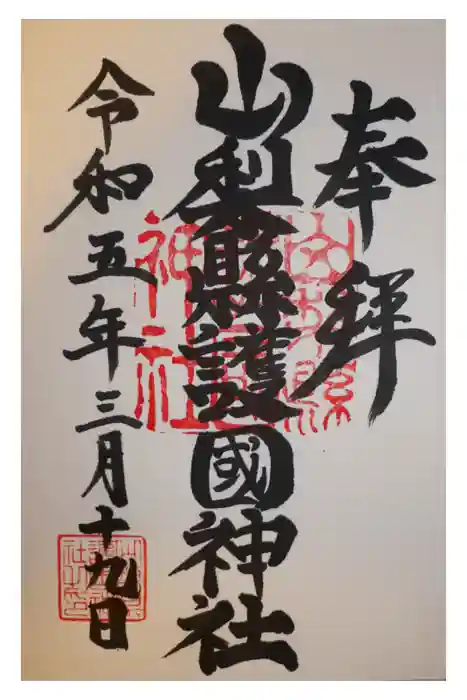 奉拝
山梨縣護國神社
令和五年三月十九日